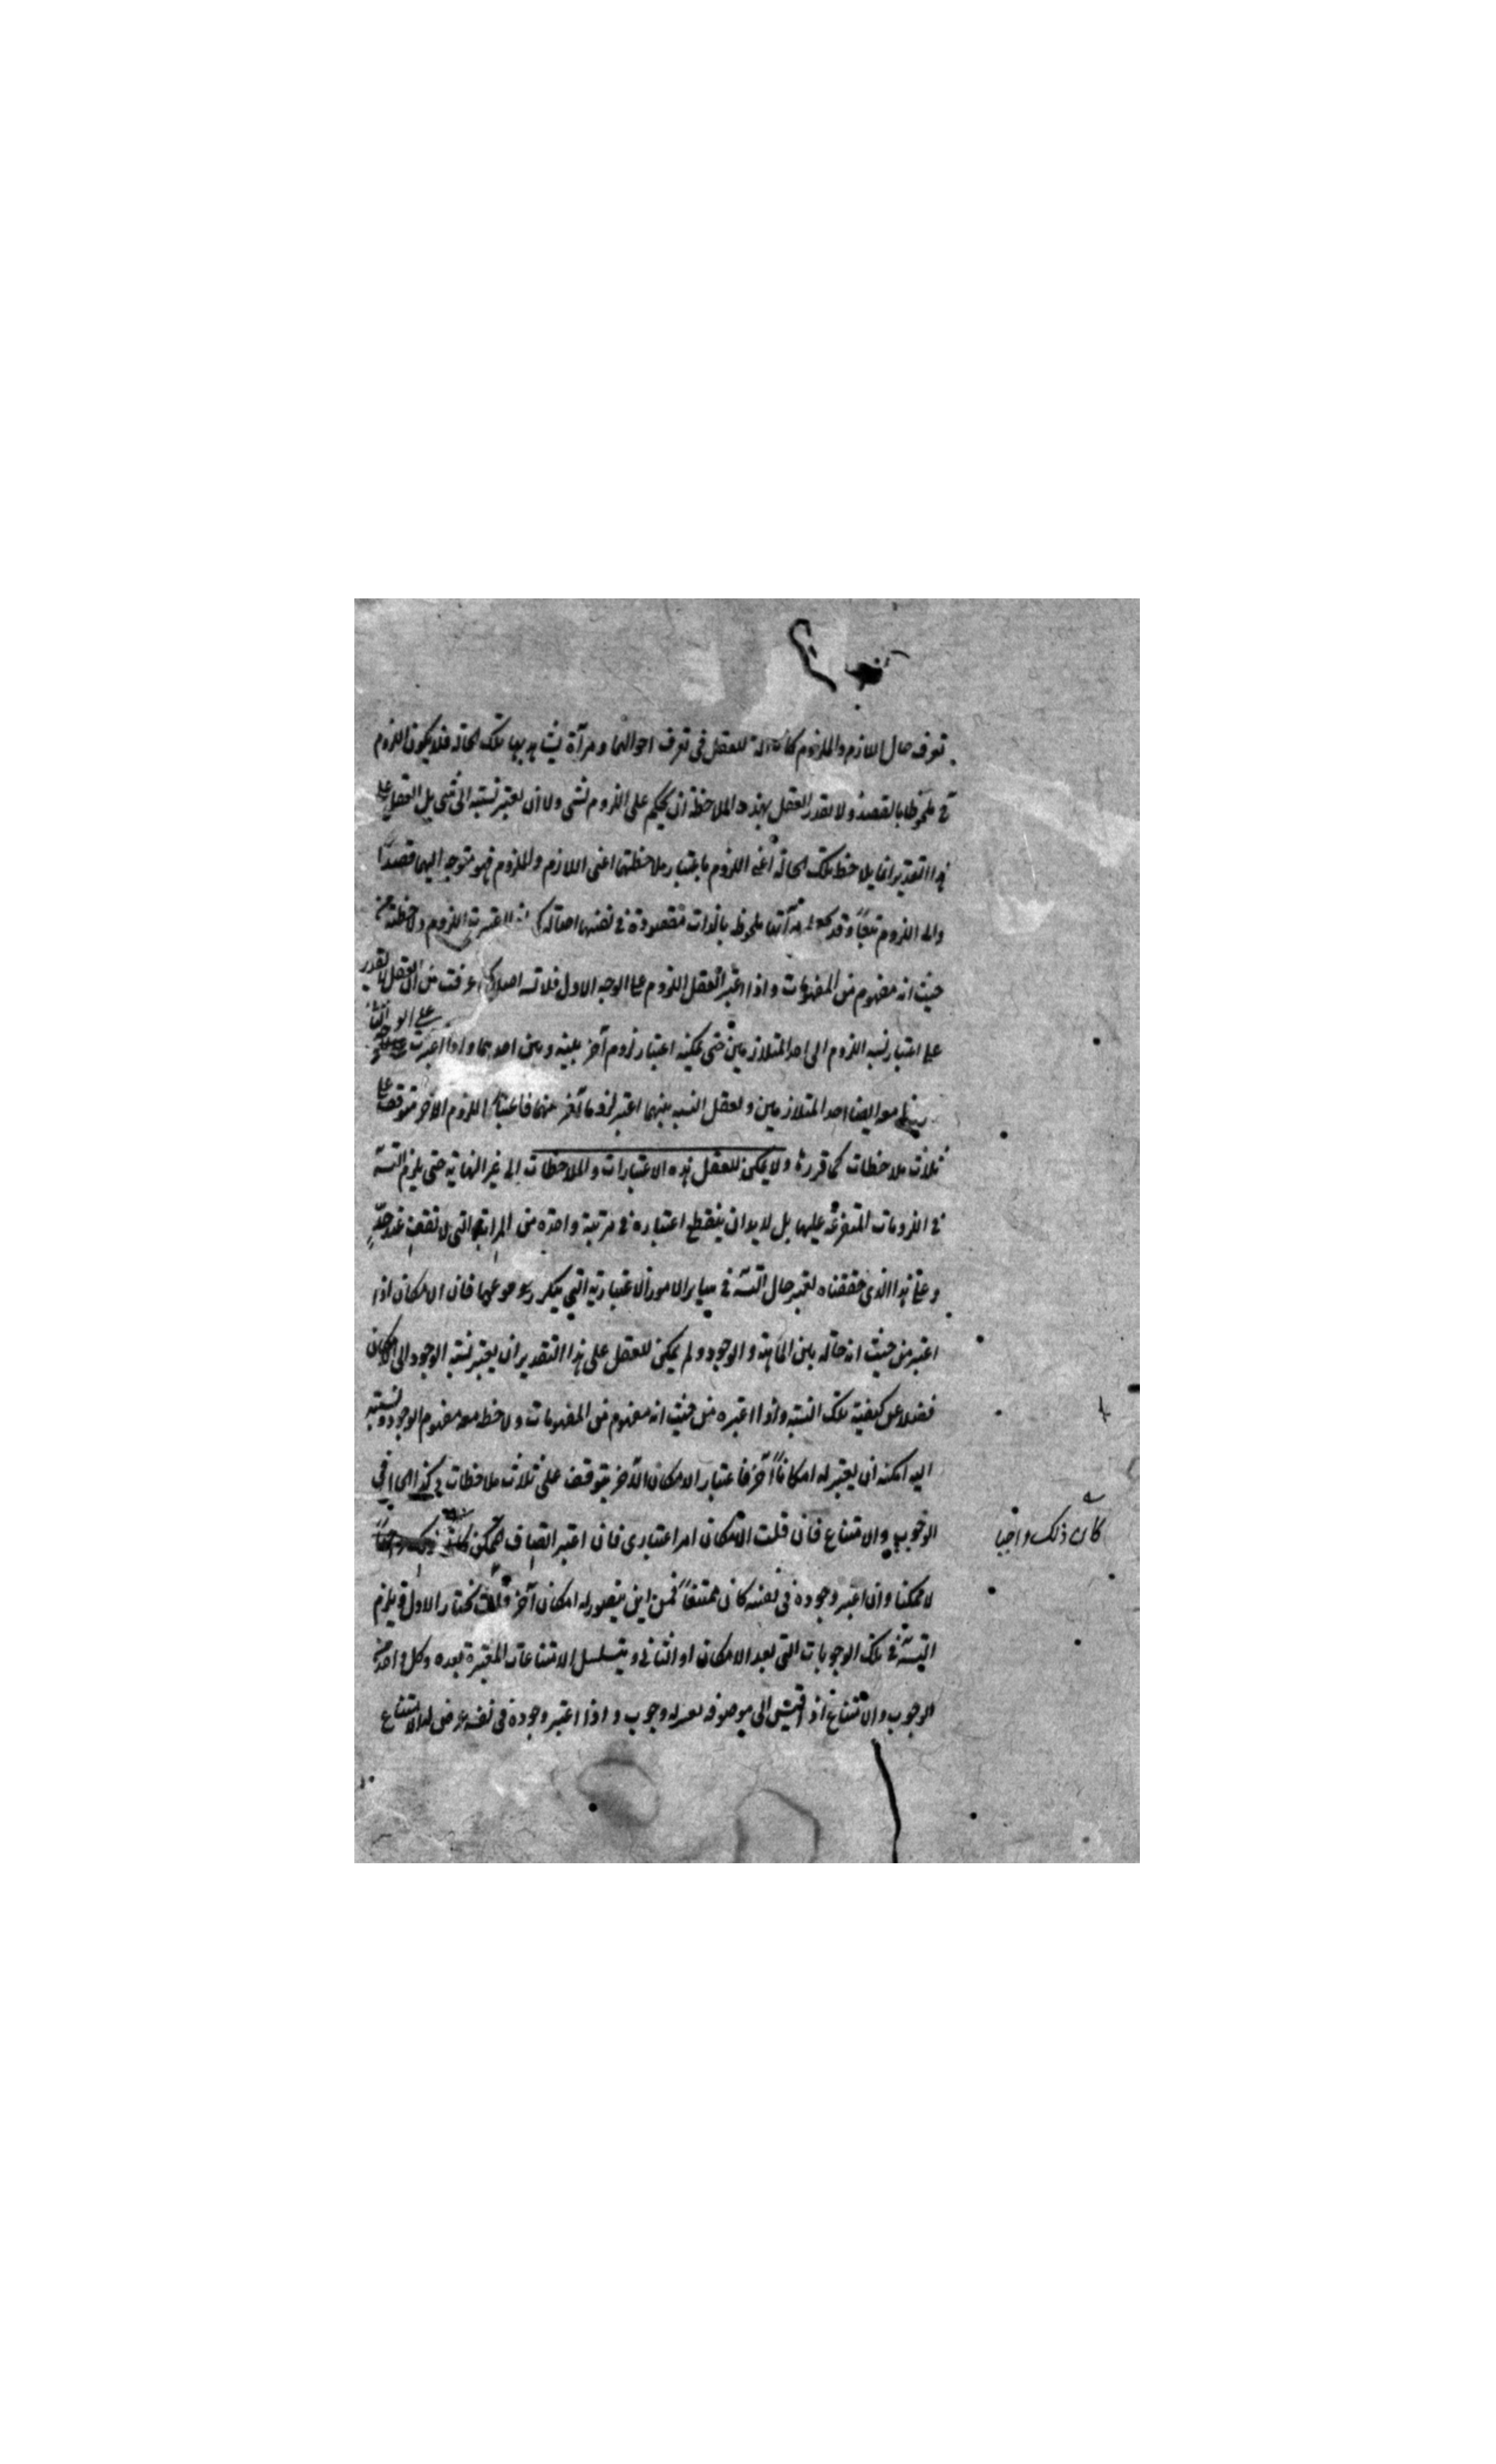 تعرف حال اللازم والملزوم كانت آلة للعقل فى تعرف احوالهما ومرآة يشاهد بها تلك الحالة فلا يكون اللزوم
ح ملحوظا بالقصد ولا يقدر العقل بهذه الملاحظة ان يحكم على اللزوم بشى ولا ان يعتبر نسبته الى شى بل العقل على
هذا التقدير انما يلاحظ تلك الحالة اعنى اللزوم باعتبار ملاحظتهما اعنى اللازم والملزوم فهو متوجه اليهما قصدًا
والى اللزوم تبعًا وقد ملحوظ بالذات مقصودة فى نفسها اصالة اعتبرت اللزوم ولاحظته من
حيث انه مفهوم من المفهومات واذا اعتبر العقل اللزوم على الوجه الاول فلا تسـ اصلا لما عرفت من ان العقل لا يقدر
على اعتبار نسبه اللزوم الى احد المتلازمين حتى يمكنه اعتبار لزوم آخر بينه وبين احدهما واذا اعتبرت على الوجه الثانى
معه ايضا احد المتلازمين وتعقل النسبه بينهما اعتبر لزوما آخر بينهما فاعتبار اللزوم الآخر متوقف على
ثلاث ملاحظات كما قررنا ولا يمكن للعقل هذه الاعتبارات والملاحظات الى غير النهاية حتى يلزم التسـ
فى اللزومات المتفرعة عليها بل لا بد ان ينقطع اعتباره فى مرتبة واحدة من المراتب التى لا تقف عند حدّ
وعلى هذا الذى حققناه يعتبر حال التسـ فى ساير الامور الاعتبارية التى يتكرر نوعها فان الامكان اذا
اعتبر من حيث انه حالة بين الماهية والوجود ولم يمكن للعقل على هذا التقدير ان يعتبر نسبة الوجود الى الامكان
فضلا عن كيفية تلك النسبة واذا اعتبره من حيث انه مفهوم من المفهومات ولاحظ معه مفهوم الوجود ونسبته
اليه امكنه ان يعتبر له امكانًا آخر فاعتبار الامكان الآخر يتوقف على ثلاث ملاحظات وكذا الحال فى
الوجوب والامتناع فان قلت الامكان امر اعتبارى فان اعتبر اتصاف الممكن
كان ذلك واجبا
لا ممكنا وان اعتبر وجوده فى نفسه كان ممتنعًا فمن اين يتصور له امكان آخر قلت نختار الاول فيلزم
التسـ فى تلك الوجوبات التى بعد الامكان او الثانى ويتسلسل الامتناعات المعتبرة بعده وكل واحد من
الوجوب والامتناع اذا قيس الى موصوفه يعرض له وجوب واذا اعتبر وجوده فى نفسه عرض له الامتناع